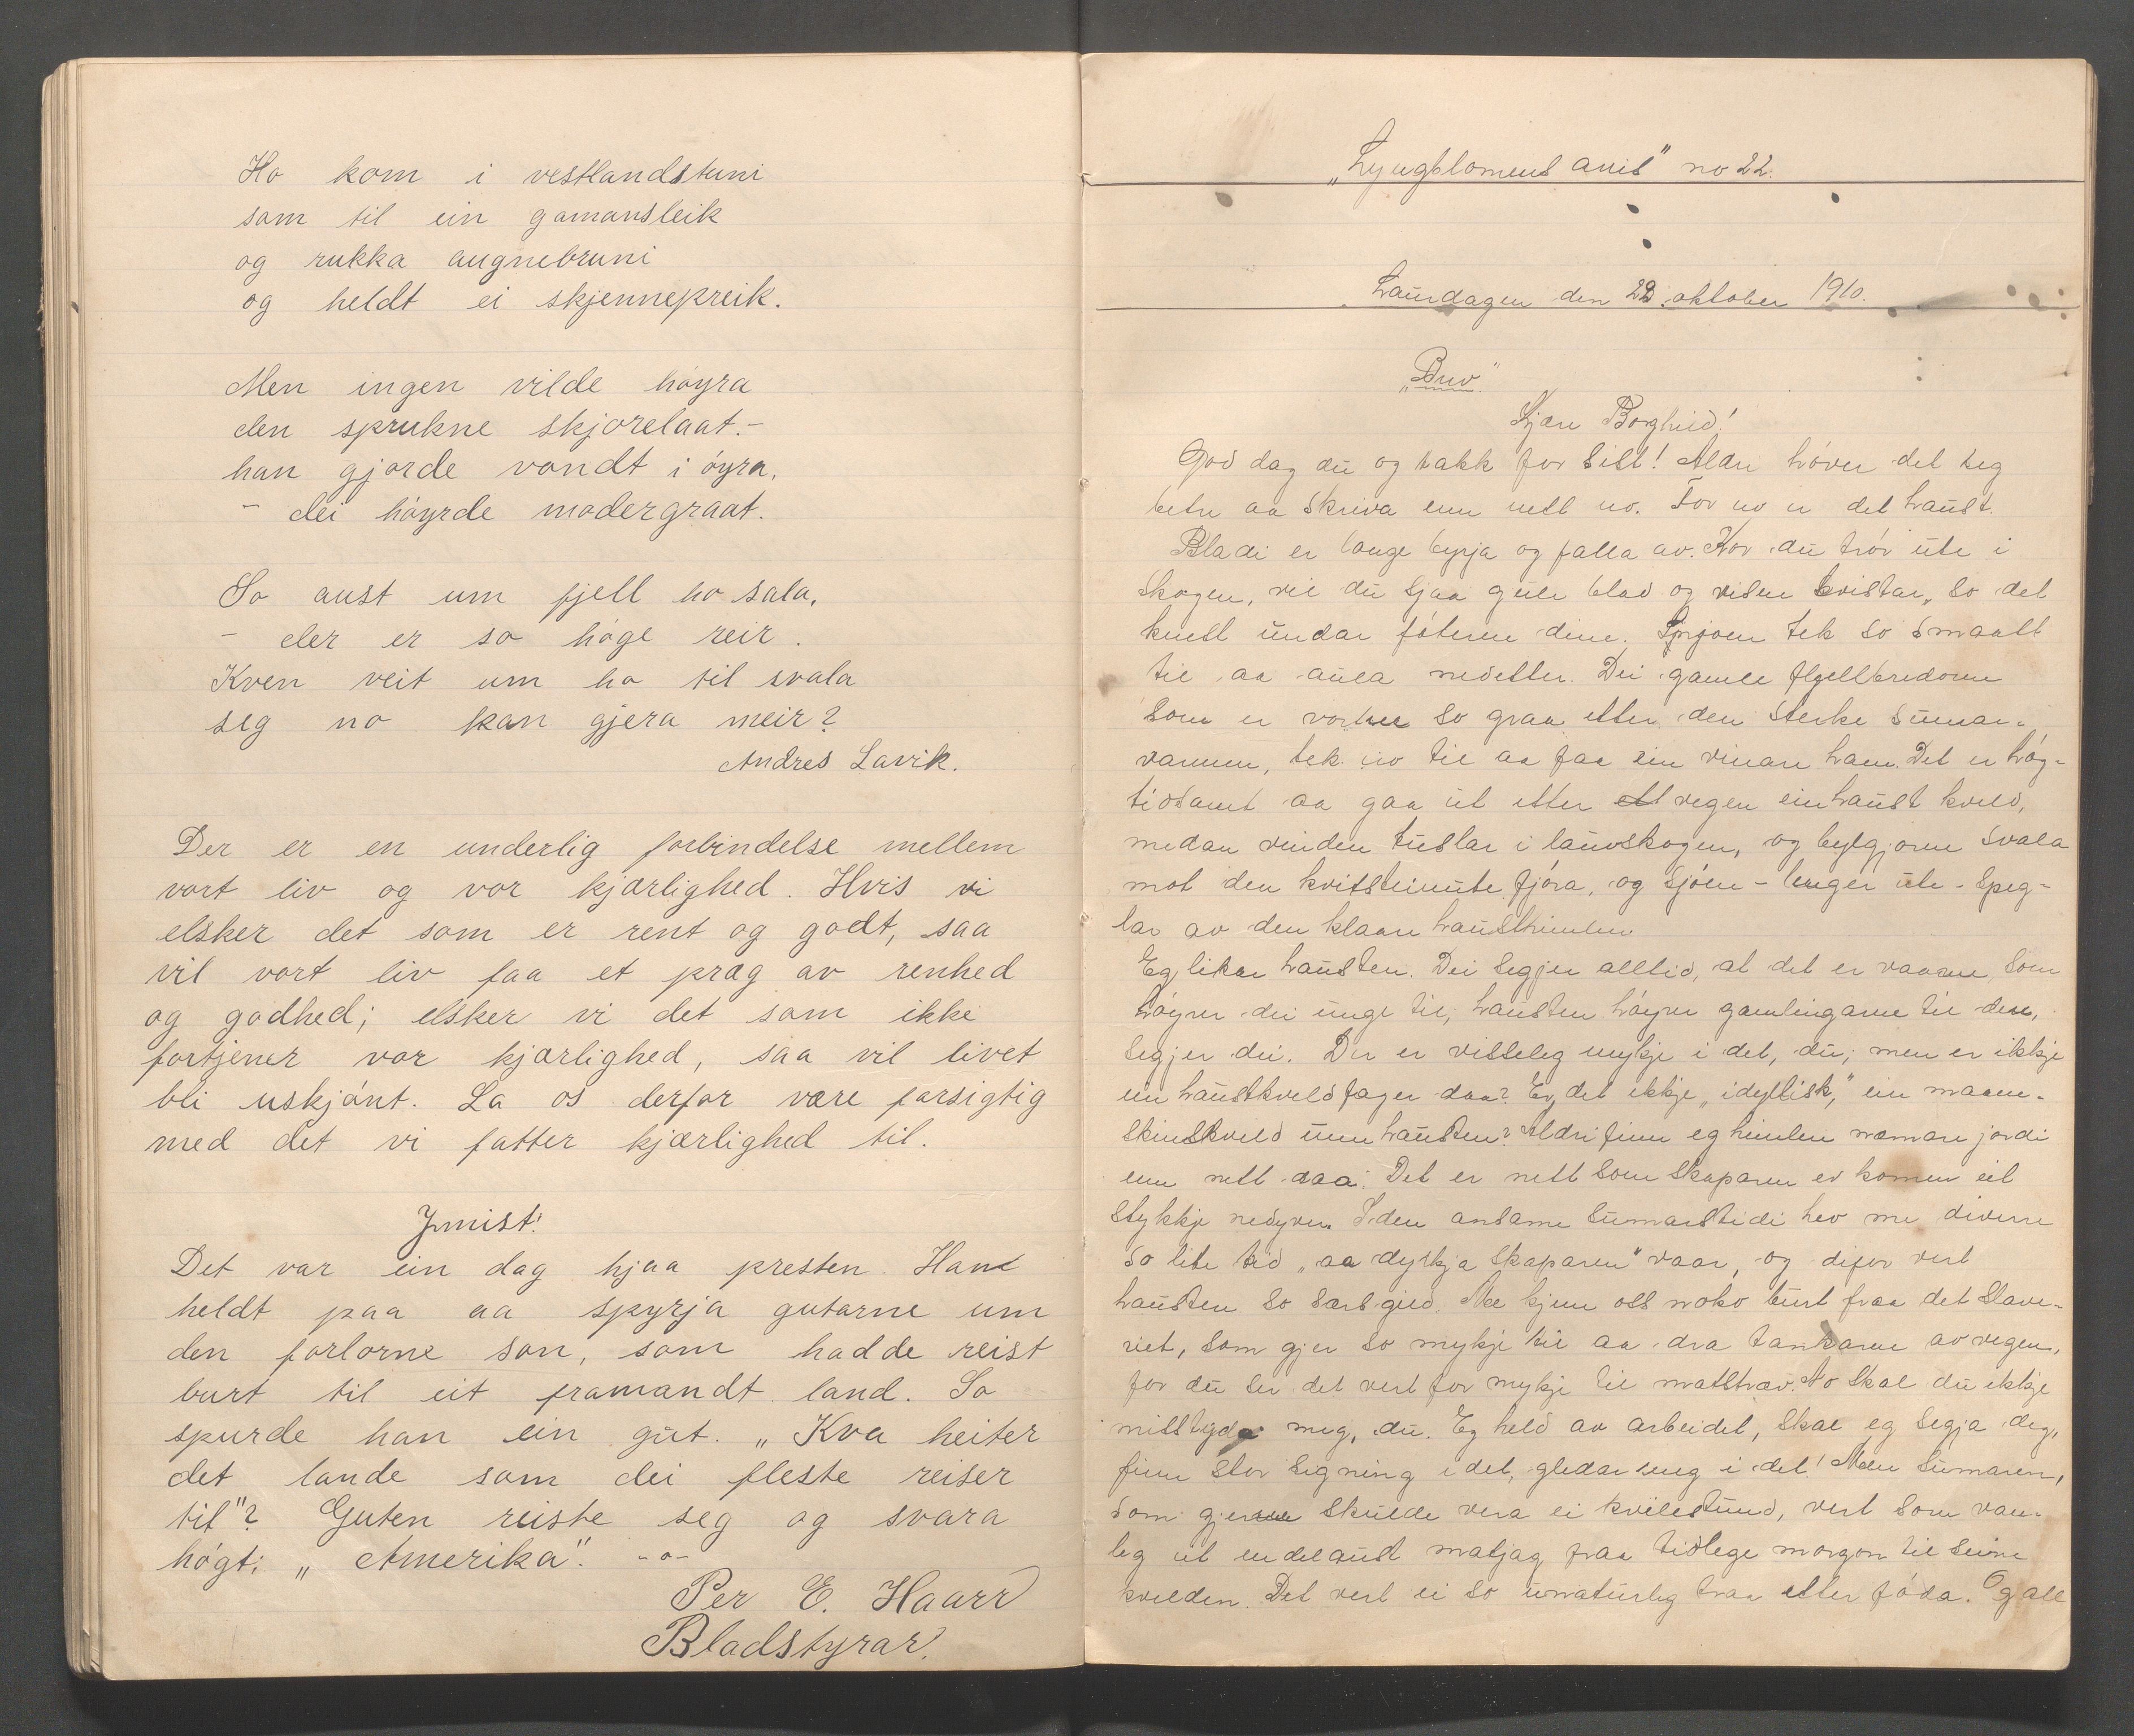 Ho kom i vestlandstuni
som til ein gamansleik
og rukka augnebruni
og heldt ei skjennepreik.
Men ingen vilde høyra
den sprukne skjorelaat.-
han gjorde vondt i øyra,
- dei høyrde modergraat.
So aust um fjell ho sala,
- der er so høge reir.
Kven veit um ho til svala
seg no kan gjera meir?
Andres Lavik.
Der er en underlig forbindelse mellem
vort liv og vor kjærlighed. Hvis vi
elsker det som er rent og godt, saa
vil vort liv faa et præg av renhed
og godhed; elsker vi det som ikke
fortjener vor kjærlighed, saa vil livet
bli uskjønt. La os derfor være forsigtig
med det vi fatter kjærlighed til.
Ymist!
Det var ein dag hjaa presten. Han
heldt paa aa spyrja gutarne um
den fortorne son, som hadde reist
burt til eit framandt land. So
spurde han ein gut. „Kva heiter
det lande som dei fleste reiser
til"? Guten reiste seg og svara
høgt: „Amerika". -o-
Per E. Haarr
Bladstyrar.
„Lyngblomens avis" no 22.
Laurdagen den 22. oktober 1910.
„Brev"
Kjære Borghild!
God dag du og takk for sist! Aldri høver det seg
betre aa skriva enn nett no. For no er det haust.
Bladi er lange byrja og falla av. Kor du trør ute i
skogen, vil du sjaa gule blad og visne kvistar, so det
knest undar føterne dine. Snjoen tek so smaatt
til aa aula nedetter. Dei gamle fjellbredorne
som er vortne so graa etter den sterke sumar-
varmen, tek no til aa faa ein vinare ham. Det er høg-
tidsamt aa gaa ut etter ett vegen ein haust kveld,
medan vinden tuslar i lauvskogen, og bylgjorne svala
mot den kvitsteinute fjøra, og sjøen - lenger ute - speg-
lar av den klaare hausthimlen.
Eg likar hausten. Dei segjer alltid, at det er vaaren som
høyrer dei unge til; hausten høyrer gamlingarne til dess,
segjer dei. Der er visseleg mykje i det, du; men er ikkje
ein haustkveld fager daa? Er det ikkje „idyllisk," ein maane-
skinskveld um hausten? Aldri finn eg himlen nærmare jordi
enn nett daa. Det er nett som skaparen er komen eit
stykkje nedyver. I den ansame sumarstidi hev me diverre
so lite tid „aa dyrkja skaparen" vaar, og difor vert
hausten so særs gild. Me kjem oss noko burt fraa det slave-
riet, som gjer so mykje til aa dra tankarne av vegen,
for du ser det vert for mykje til matstræv. No skal du ikkje
misstyda meg, du. Eg held av arbeidet, skal eg segja deg,
finn stor signing i det, gledar meg i det! Men sumaren,
som gjerne skulde vera ei kvilestund, vert som van-
leg ut endelaust matjag fraa tidlege morgon til seine
kvelden. Det vert ei so unaturleg traa etter føda. Og all